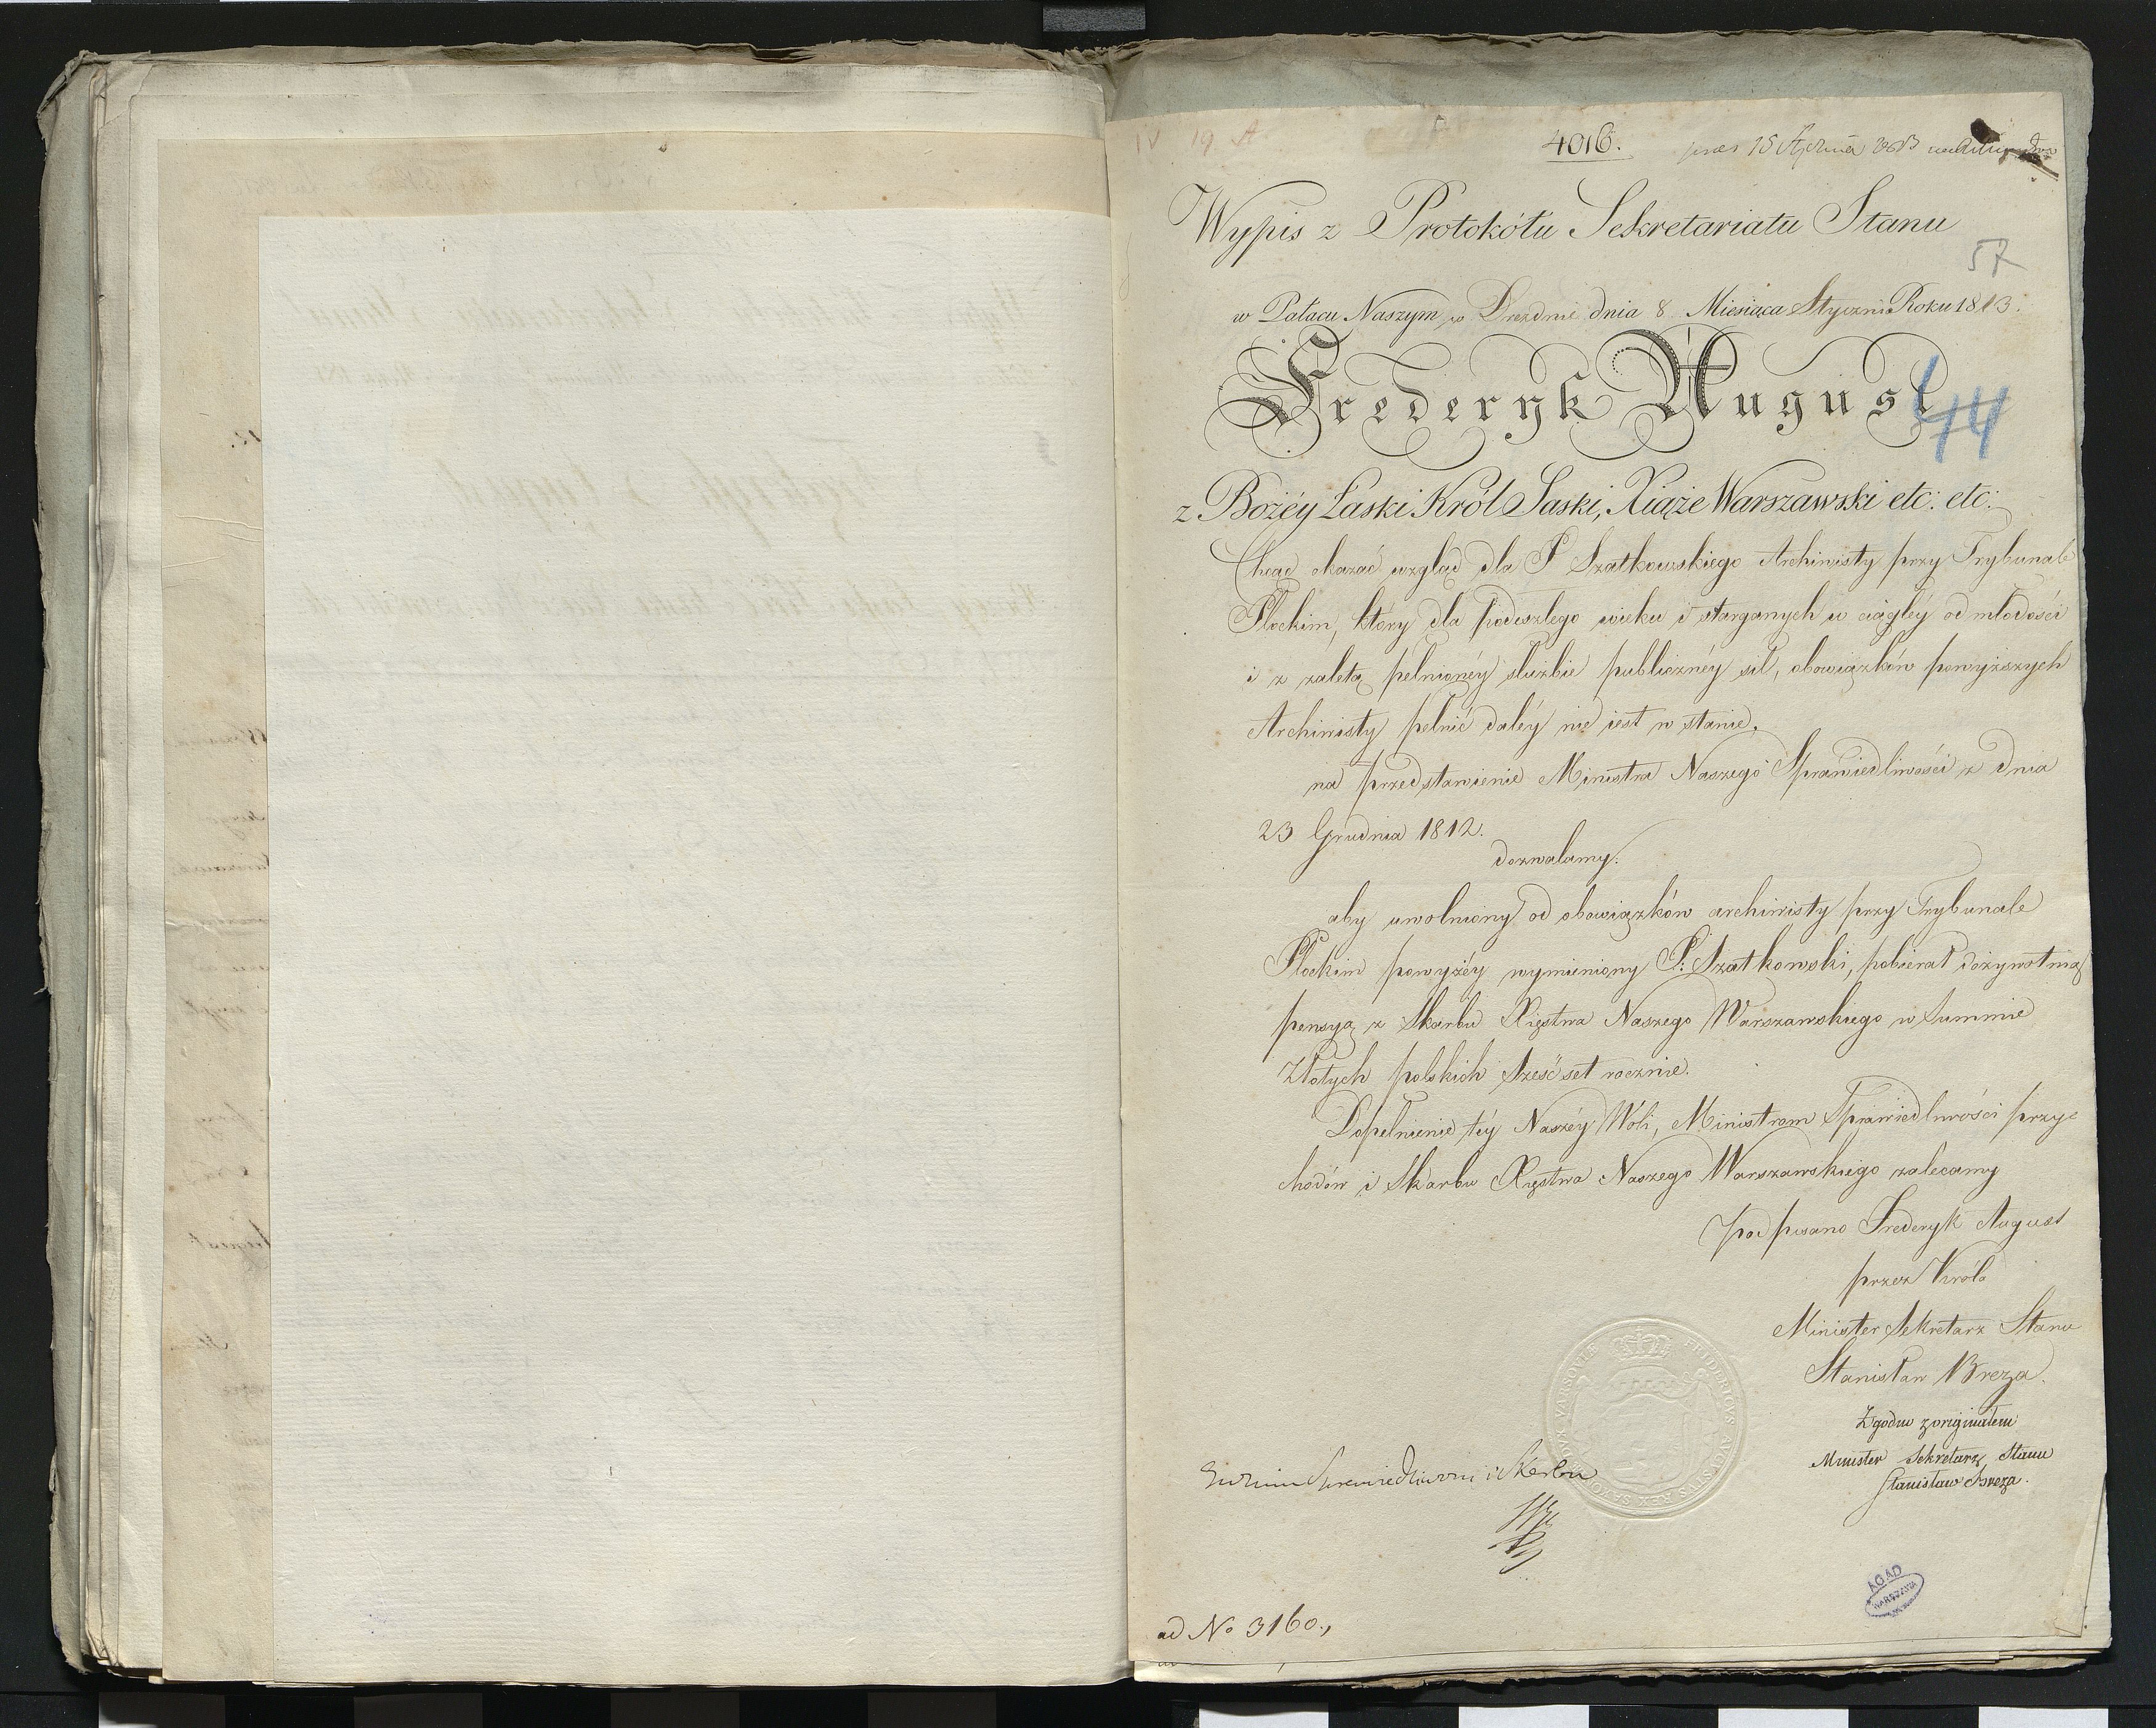 IV 19 A
4016.
15 Stycznia
Wypis z Protokółu Sekretariatu Stanu
57
w Pałacu Naszym w Dreznie dnia 8 Miesiąca Stycznia Roku 1813.
Frederyk August
44
z Bożéy Łaski Król Saski, Xiąże Warszawski etc: etc:
Chcąc okazać wzgląd dla P Szatkowskiego Archiwisty przy Trybunale
Płockim, który dla podeszłego wieku i starganych w ciągłéy od młodości
i z zaletą pełnionéy służbie publicznéy sił, obowiązków powyższych
Archiwisty pełnić daléy nie iest w stanie,
na przedstawienie Ministra Naszego Sprawiedliwości z dnia
23 Grudnia 1812.
dozwalamy:
aby uwolniony od obowiązków archiwisty przy Trybunale
Płockim powyżéy wymieniony P: Szatkowski, pobierał dożywotnią
pensyą z Skarbu Xięstwa Naszego Warszawskiego w Summie
Złotych polskich sześćset rocznie.
Dopełnienie téy Naszéy Woli, Ministrom Sprawiedliwości przy-
chodów i Skarbu Xięstwa Naszego Warszawskiego zalecamy
podpisano Frederyk August
przez Króla
Minister Sekretarz Stanu
Stanisław Breza.
Zgodno z originałem
Minister Sekretarz Stanu
Stanisław Breza.
Sprawiedliwości i Skarbu
FRIDERICVS AVGVSTVS REX SAXONIAE DVX VARSOVIAE
AGAD
WARSZAWA
ad No 3160.,